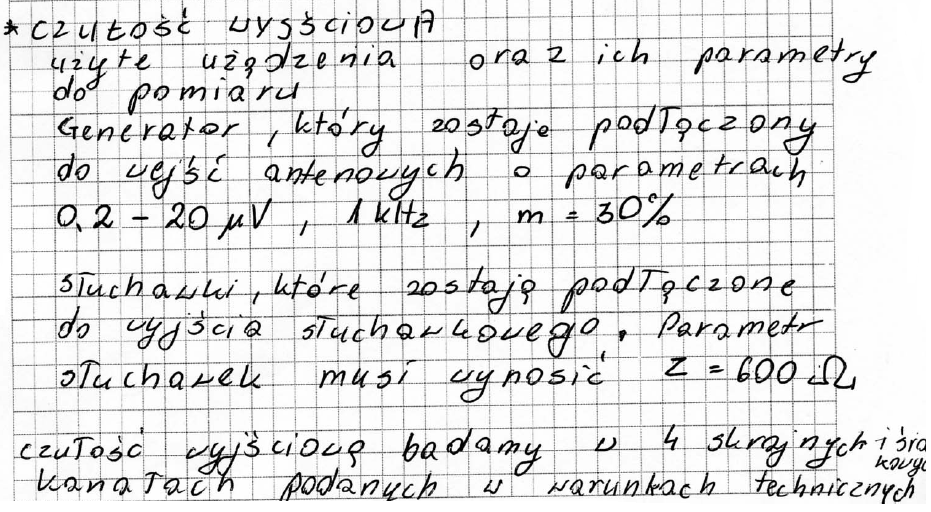 * czułość wyśściowA
użyte użądzenia oraz ich parametry
do pomiaru
Generator, który zostaje podłączony
do wejść antenowych o parametrach
0,2 - 20 μV, 1 kHz, m = 30%
słuchawki, które zostają podłączone
do wyjścia słuchawkowego. Parametr
słuchawek musi wynosić Z = 600 Ω
czułość wyjściową badamy w 4 skrajnych i
kanałach podanych w warunkach technicznych